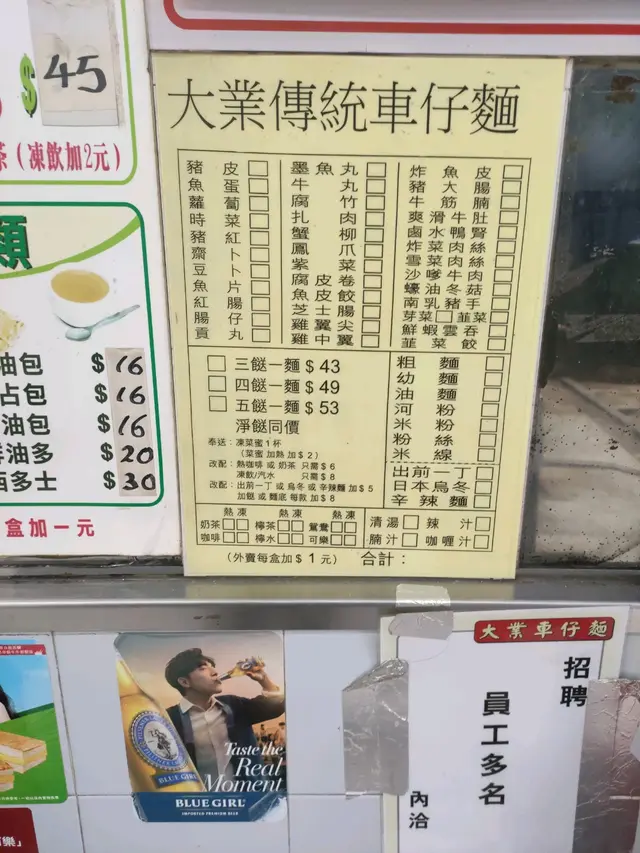 $45
茶(凍飲加2元)
類
油包 $16
占包 $16
油包 $16
油多 $20
西多士 $30
盒加一元
大業傳統車仔麵
豬皮
魚蛋
蘿蔔
時菜
豬紅
齋卜卜
豆卜
魚片
紅腸
腸仔
貢丸
墨魚丸
牛丸
腐竹
扎肉
蟹柳
鳳爪
紫菜
腐皮卷
魚皮餃
芝士腸
雞翼尖
雞中翼
炸魚皮
豬大腸
牛筋腩
爽滑牛肚
鹵水鴨腎
炸菜肉絲
雪菜肉絲
沙嗲牛肉
蠔油冬菇
南乳豬手
芽菜 韮菜
鮮蝦雲吞
韮菜餃
三餸一麵 $43
四餸一麵 $49
五餸一麵 $53
淨餸同價
奉送:凍菜蜜1杯
(菜蜜加熱加$2)
改配:熱咖啡 或 奶茶 只需$6
凍飲/汽水 只需$8
改配:出前一丁 或 烏冬 或 辛辣麵 加$5
加餸 或 麵底 每款 加$8
粗麵
幼麵
油麵
河粉
米粉
粉絲
米線
出前一丁
日本烏冬
辛辣麵
熱凍 熱凍 熱凍
奶茶 檸茶 鴛鴦
咖啡 檸水 可樂
清湯 辣汁
腩汁 咖喱汁
(外賣每盒加$1元) 合計:
Taste the
Real
Moment
BLUE GIRL
BLUE GIRL
IMPORTED PREMIUM BEER
大業車仔麵
招聘
員工多名
內洽
樂」